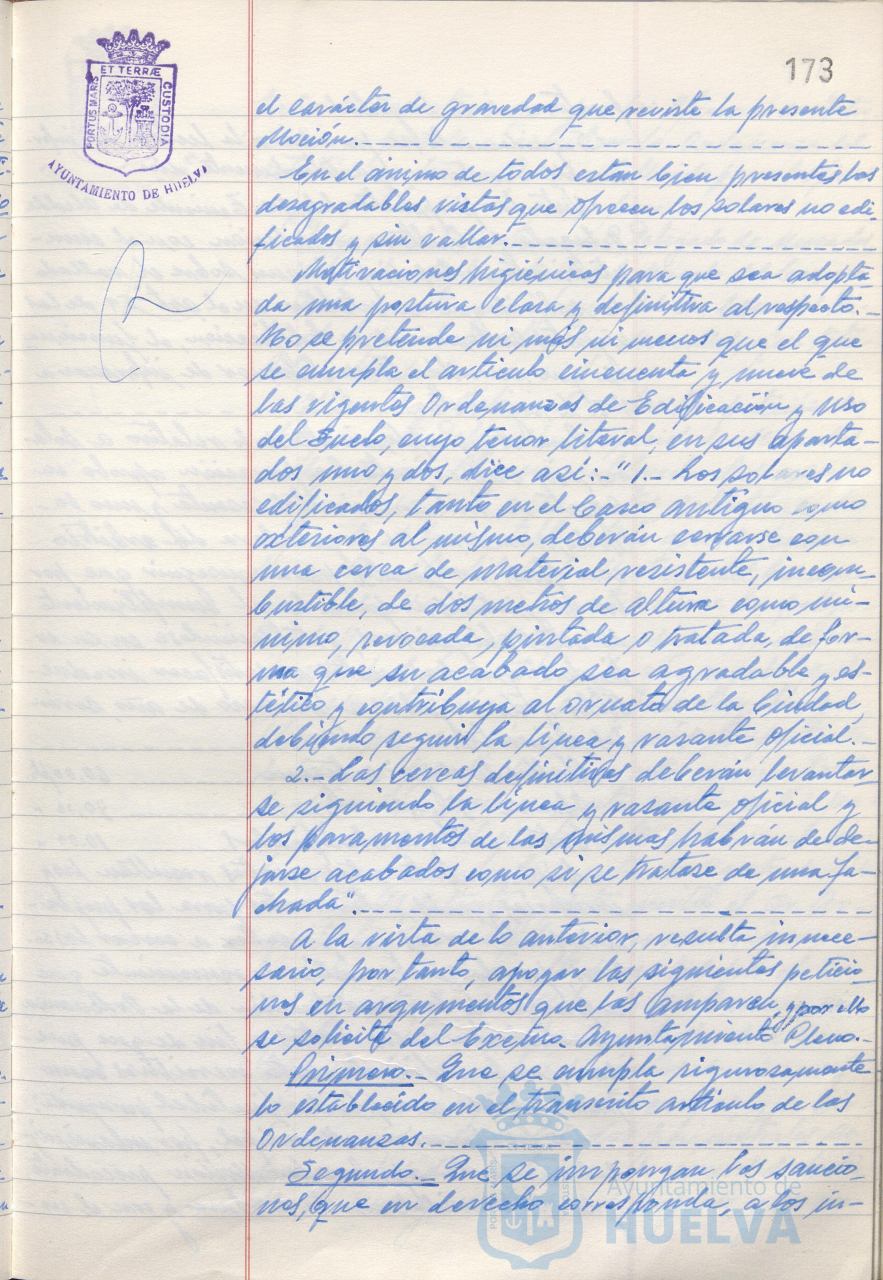 173
ET TERRÆ
PORTUS MARIS
CUSTODIA
AYUNTAMIENTO DE HUELVA
el carácter de gravedad que reviste la presente
Moción.
En el ánimo de todos estan bien presentes las
desagradables vistas que ofrecen los solares no edi-
ficados y sin vallar.
Motivaciones higiénicas para que sea adopta-
da una postura clara y definitiva al respecto.-
No se pretende ni más ni menos que el que
se cumpla el articulo cincuenta y nueve de
las vigentes Ordenanzas de Edificación y Uso
del Suelo, cuyo tenor literal, en sus aparta-
dos uno y dos, dice así:-"1.- Los solares no
edificados, tanto en el Casco antiguo como
exteriores al mismo, deberán cerrarse con
una cerca de material resistente, incom-
bustible, de dos metros de altura como mí-
nimo, revocada, pintada o tratada, de for-
ma que su acabado sea agradable y es-
tético y contribuya al ornato de la Ciudad,
debiendo seguir la línea y rasante oficial.-
2.- Las cercas definitivas deberán levantar-
se siguiendo la línea y rasante oficial y
los paramentos de las mismas habrán de de-
jarse acabados como si se tratase de una fa-
chada".
A la vista de lo anterior, resulta innece-
sario, por tanto, apoyar las siguientes peticio-
nes en argumentos que las amparen, y por ello
se solicita del Excmo. Ayuntamiento Pleno.-
Primero.- Que se cumpla rigurosamente
lo establecido en el transcrito artículo de las
Ordenanzas.
Segundo.- Que se impongan las sancio-
nes, que en derecho corresponda, a los in-
Ayuntamiento de
HUELVA